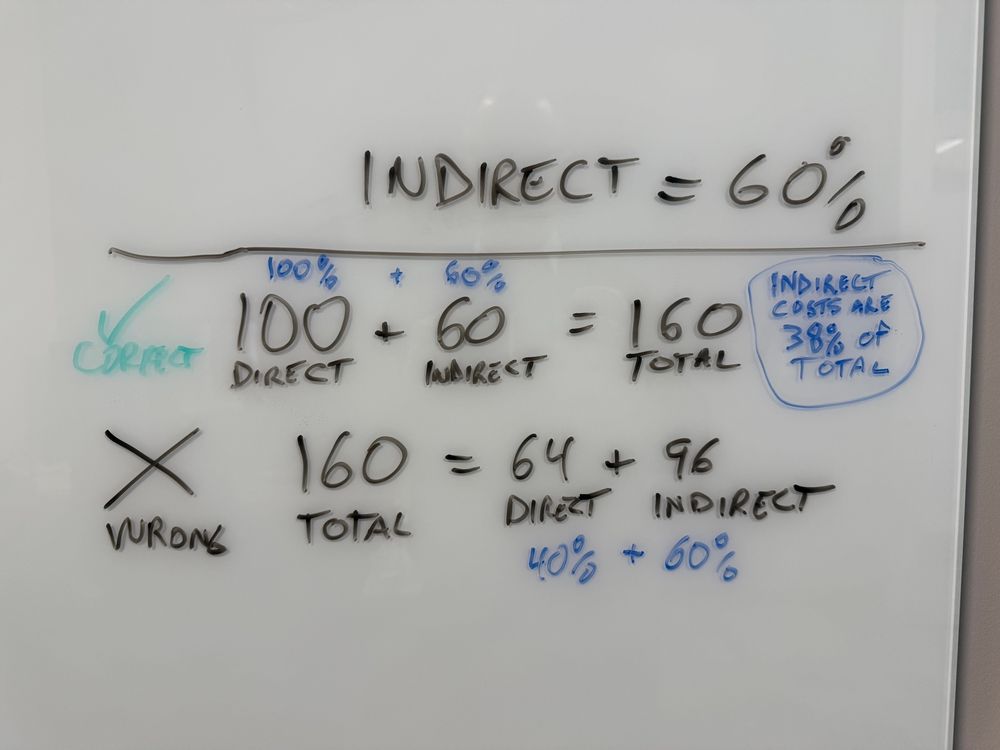 INDIRECT = 60%
100% + 60%
100 + 60 = 160
DIRECT INDIRECT TOTAL
CORRECT
INDIRECT
COSTS ARE
38% OF
TOTAL
160 = 64 + 96
WRONG TOTAL DIRECT INDIRECT
40% + 60%